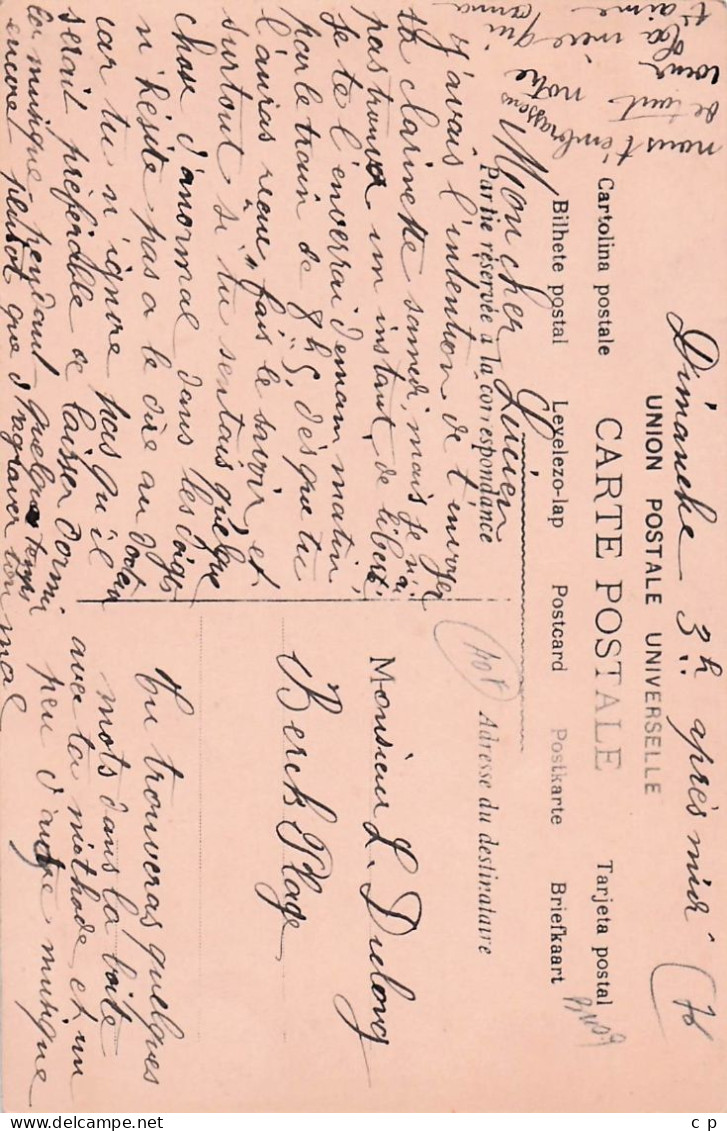 Dimanche 3h après midi
76
UNION POSTALE UNIVERSELLE
CARTE POSTALE
Cartolina postale
Tarjeta postal
Bilhete postal Levelezo-lap Postcard Postkarte Briefkaart
Partie réservée à la correspondance
Adresse du destinataire
Mon cher Lucien
J'avais l'intention de t'envoyer
ta clarinette samedi, mais je n'ai
pas trouvé un instant de liberté
Je te l'enverrai demain matin
par le train de 8h5, dès que tu
l'auras reçue, fais le savoir, et
surtout si tu sentais quelque
chose d'anormal dans les doigts
n'hésite pas à le dire au docteur
car tu n'ignore pas qu'il
serait préférable de laisser dormir
la musique pendant quelque temps
encore plutôt que d'aggraver ton mal
Monsieur L. Dulong
Berck Plage
Tu trouveras quelques
mots dans la boîte
avec ta méthode et un
peu d'autre musique
nous t'embrassons
de tout notre
cœur
Ta mère qui
t'aime
c p